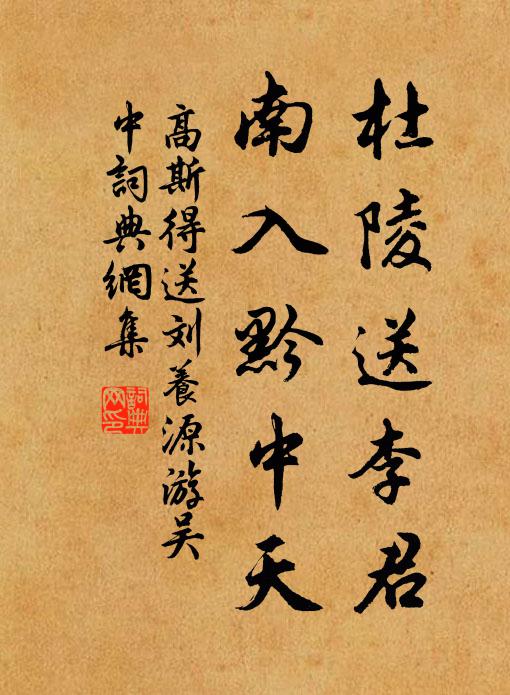 杜陵送李君
南入黔中天
高斯得送刘養源游吴
中詞典網集
詞典
网印